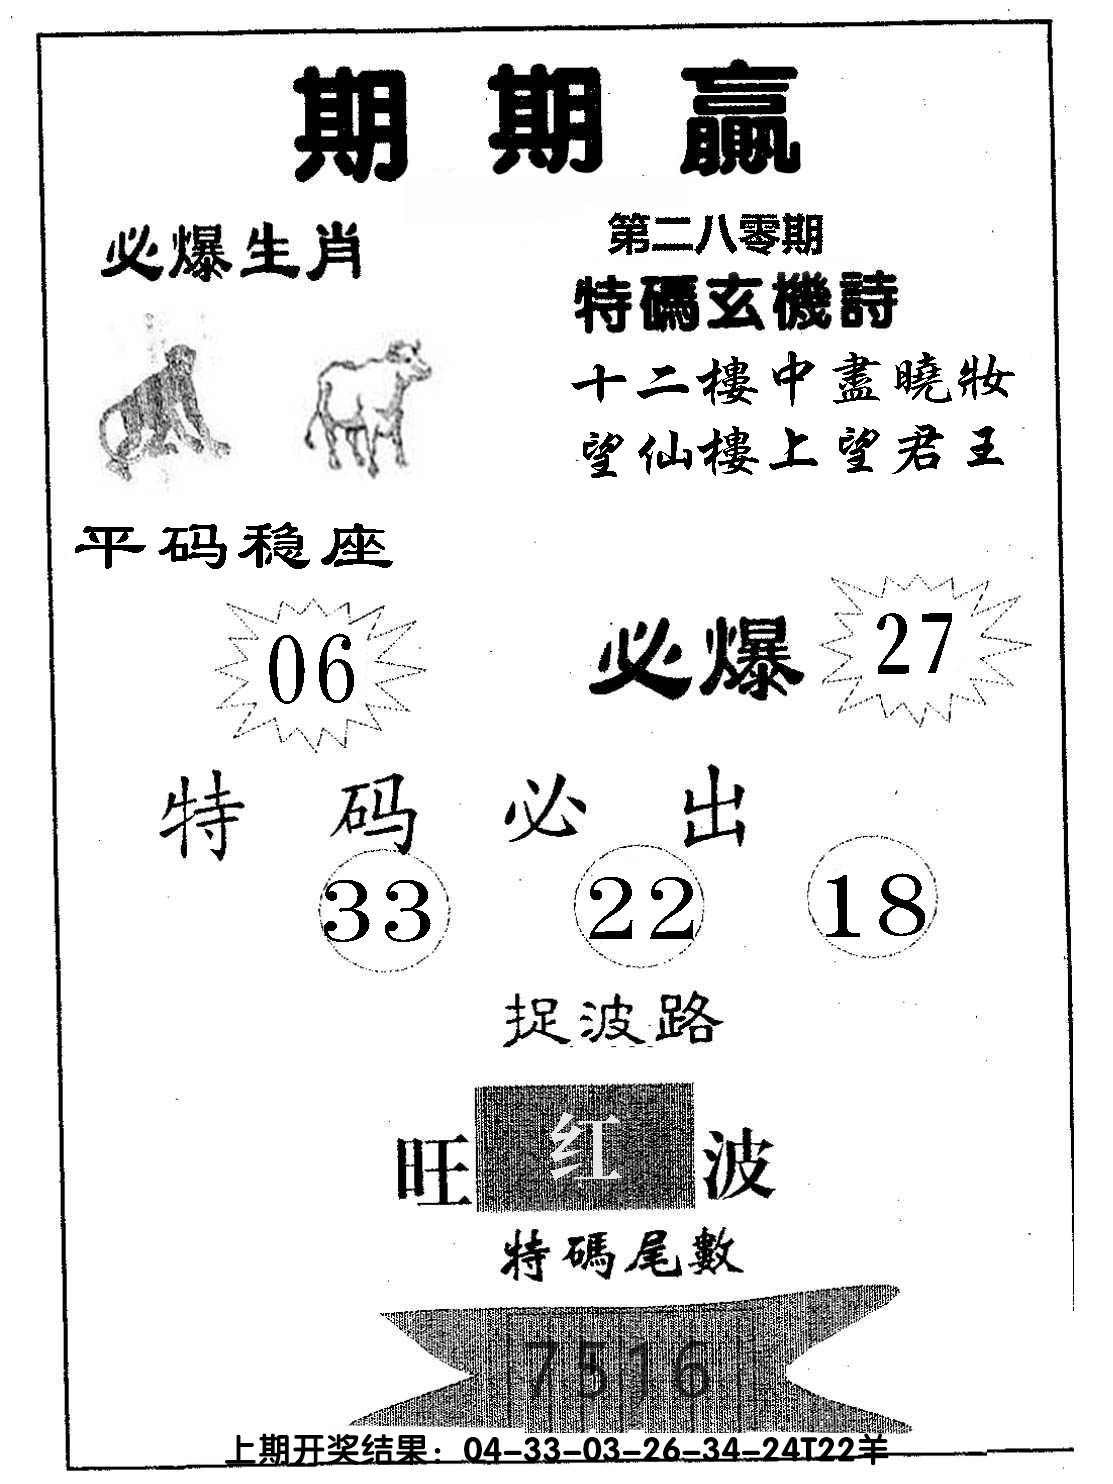 期期贏
必爆生肖
第二八零期
特碼玄機詩
十二樓中盡曉妝
望仙樓上望君王
平码稳座
06
必爆 27
特码必出
33 22 18
捉波路
旺 红 波
特碼尾數
7516
上期开奖结果：04-33-03-26-34-24T22羊